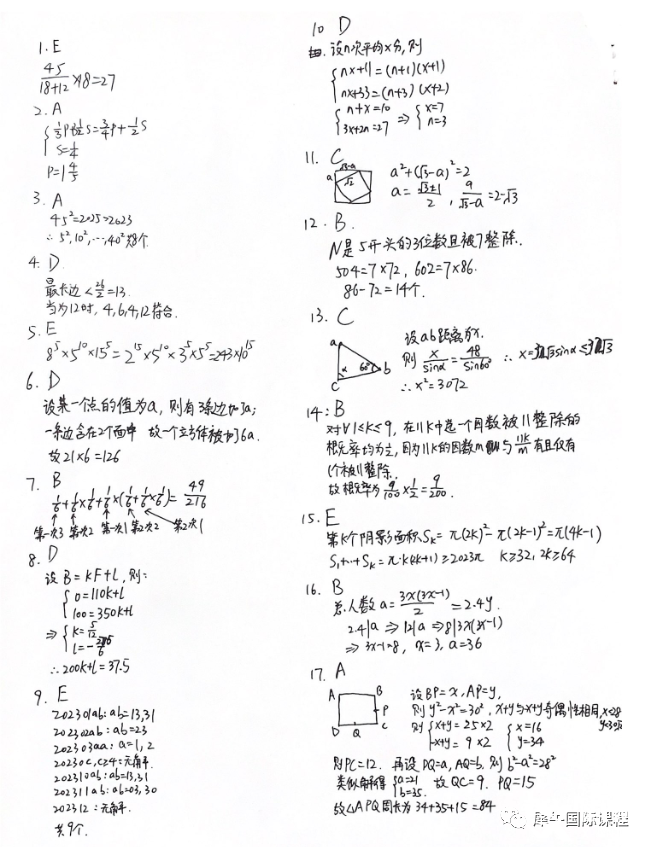 1. E
45/(18+12) ×18=27
2. A
{ 1/3P+1/2S=3/4P+1/2S
S=1/4
P=1 4/5
3. A
45²=2025>2023
∴ 5², 10², …, 40² 共8个.
4. D.
最长边 < 26/2=13.
当为12时, 4, 6, 4, 12符合.
5. E
8⁵×5¹⁰×15⁵=2¹⁵×5¹⁰×3⁵×5⁵=243×10¹⁵
6. D
设某一个点的值为a, 则有3条边加了a;
一条边含在2个面中 故一个立方体被加了6a.
故21×6=126
7. B
1/6+1/6×1/6+1/6×(1/6+1/6×1/6)=49/216
第一次3 第二次2 第一次1 第2次2 第2次1
8. D
设 B=kF+l, 则:
{ 0=110k+l
100=350k+l
⇒ { k=5/12
∴200k+l=37.5
9. E
202301ab: ab=13,31
202302ab: ab=23
202303aa: a=1, 2
202310ab: ab=13,31
202311ab: ab=03,30
共9个.
10 D
设n次平均x分, 则
{ nx+11=(n+1)(x+1)
nx+33=(n+3)(x+2)
{ n+x=10
3x+2n=27 ⇒ { x=7
n=3
11. C
√3-a
a
√2
a²+(√3-a)²=2
a=(√3±1)/2, a/(√3-a)=2-√3
12. B.
N是5开头的3位数且被7整除.
504=7×72, 602=7×86.
86-72=14个.
13. C
a
α
60°
b
c
设ab距离为x.
则 x/sinα=48/sin60°
∴x²=3072
14: B
对∀1≤k≤9, 在11k中选一个因数被11整除的
概率均为1/2, 因为11k的因数m与11k/m有且仅有
1个被11整除.
故概率为 9/100×1/2=9/200.
15. E
第k个阴影面积Sk=π(2k)²-π(2k-1)²=π(4k-1)
S1+…+Sk=π·k(2k+1)≥2023π k≥32, 2k≥64
16. B
总人数a=3x(3x-1)/2=2.4y.
2.4|a ⇒12|a ⇒8|3x(3x-1)
⇒ 3x-1=8, x=3, a=36
17. A
A
B
P
D
Q
C
设BP=x, AP=y,
则y²-x²=30², x+y与x-y奇偶性相同,
则 { x+y=25×2
-x+y=9×2 { x=16
y=34
则PC=12. 再设DQ=a, AQ=b, 则b²-a²=28²
类似解得 { a=21
b=35. 故QC=9. PQ=15
故△APQ周长为34+35+15=84
国际课程